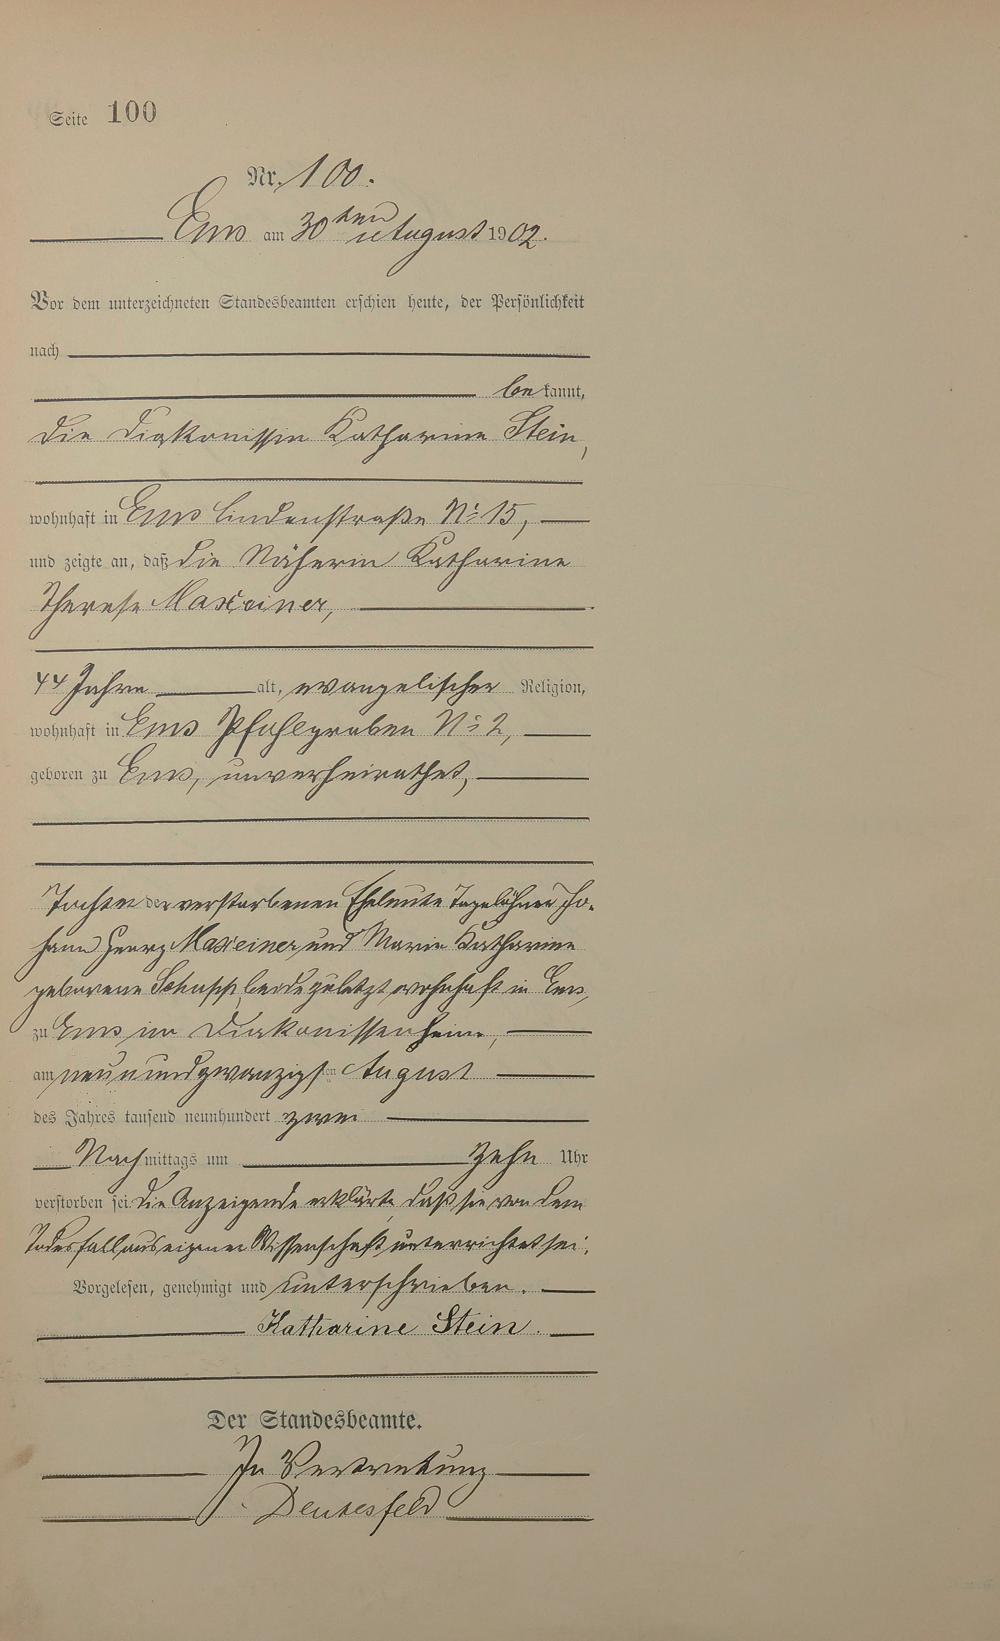 Seite 100
Nr. 100.
Ems am 30ten August 1902.
Vor dem unterzeichneten Standesbeamten erschien heute, der Persönlichkeit
nach
bekannt,
die Diakonissin Katharine Stein,
wohnhaft in Ems Lindenstraße No 15,
und zeigte an, daß die Näherin Katharine
Therese Maxeiner,
44 Jahre alt, evangelischer Religion,
wohnhaft in Ems Pfahlgraben No 2,
geboren zu Ems, unverheirathet,
Tochter der verstorbenen Eheleute Tagelöhner Jo-
hann Georg Maxeiner und Marie Katharine
geborene Schupp, beide zuletzt wohnhaft in Ems,
zu Ems im Diakonissenheim,
am neunundzwanzigsten August
des Jahres tausend neunhundert zwei
Nachmittags um zehn Uhr
verstorben sei. Die Anzeigende erklärte, daß sie von dem
Todesfall aus eigener Wissenschaft unterrichtet sei.
Vorgelesen, genehmigt und unterschrieben.
Katharine Stein.
Der Standesbeamte.
In Vertretung